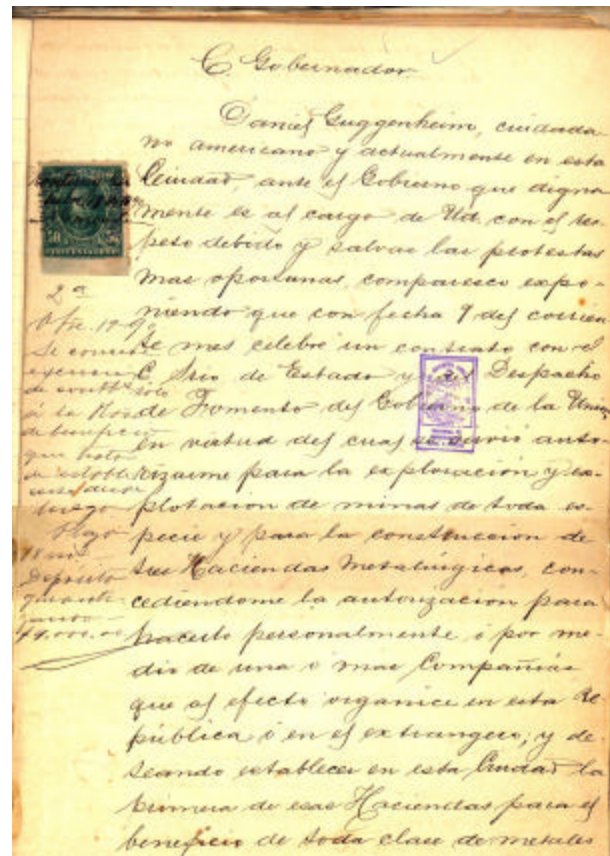 C. Gobernador
Daniel Guggenheim, ciudada-
no americano y actualmente en esta
Ciudad, ante el Gobierno que digna-
mente es al cargo de Ud. con el res-
peto debido y salvas las protestas
mas oportunas, comparesco expo-
niendo que con fecha 9 del corrien-
te mes celebré un contrato con el
C. Srio de Estado y del Despacho
de Fomento del Gobierno de la Union
en virtud del cual se sirvió auto-
rizarme para la exploracion y ex-
plotacion de minas de toda es-
pecie y para la construccion de
tres Haciendas Metalúrgicas, con-
cediendome la autorizacion para
hacerlo personalmente ó por me-
dio de una ó mas Compañias
que al efecto organice en esta Re-
pública ó en el extrangero; y de-
seando establecer en esta Ciudad la
primera de esas Haciendas para el
beneficio de toda clase de metales
50 50
2a
Obre. 19-90
Se concede
de contb.
á la
de beneficio
que trata
de establecer
luego
Plazo
18 ms
Deposito